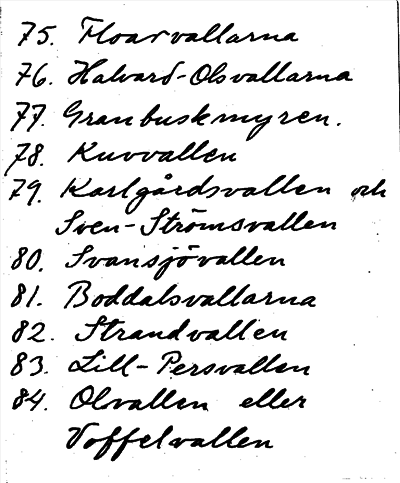 75. Floarvallarna
76. Halvard-Olsvallarna
77. Granbuskmyren.
78. Kuvvallen
79. Karlgårdsvallen och
Sven-Strömsvallen
80. Svansjövallen
81. Boddalsvallarna
82. Strandvallen
83. Lill-Persvallen
84. Olovallen eller
Voffelvallen